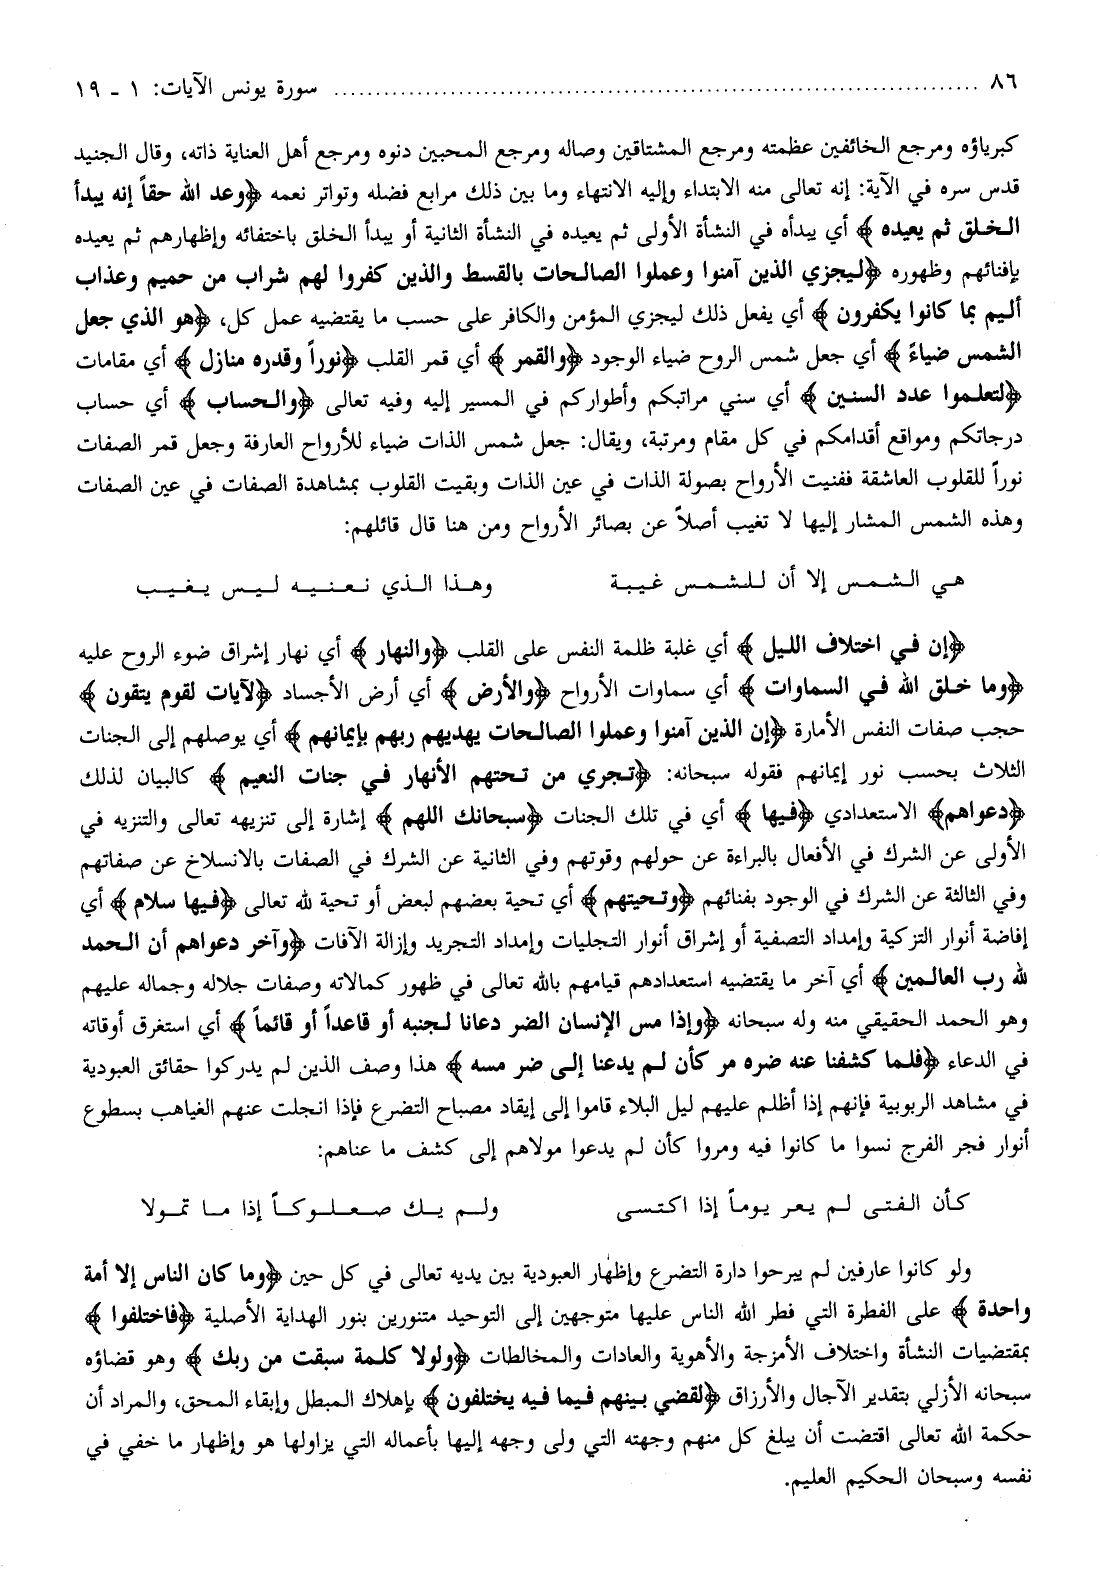 ٨٦ ........................................ سورة يونس الآيات: ١ - ١٩
كبرياؤه ومرجع الخائفين عظمته ومرجع المشتاقين وصاله ومرجع المحبين دنوه ومرجع أهل العناية ذاته، وقال الجنيد
قدس سره في الآية: إنه تعالى منه الابتداء وإليه الانتهاء وما بين ذلك مرابع فضله وتواتر نعمه ﴿وعد الله حقاً إنه يبدأ
الخلق ثم يعيده﴾ أي يبدأه في النشأة الأولى ثم يعيده في النشأة الثانية أو يبدأ الخلق باختفائه وإظهارهم ثم يعيده
بإفنائهم وظهوره ﴿ليجزي الذين آمنوا وعملوا الصالحات بالقسط والذين كفروا لهم شراب من حميم وعذاب
أليم بما كانوا يكفرون﴾ أي يفعل ذلك ليجزي المؤمن والكافر على حسب ما يقتضيه عمل كل، ﴿هو الذي جعل
الشمس ضياءً﴾ أي جعل شمس الروح ضياء الوجود ﴿والقمر﴾ أي قمر القلب ﴿نوراً وقدره منازل﴾ أي مقامات
﴿لتعلموا عدد السنين﴾ أي سني مراتبكم وأطواركم في المسير إليه وفيه تعالى ﴿والحساب﴾ أي حساب
درجاتكم ومواقع أقدامكم في كل مقام ومرتبة، ويقال: جعل شمس الذات ضياء للأرواح العارفة وجعل قمر الصفات
نوراً للقلوب العاشقة ففنيت الأرواح بصولة الذات في عين الذات وبقيت القلوب بمشاهدة الصفات في عين الصفات
وهذه الشمس المشار إليها لا تغيب أصلاً عن بصائر الأرواح ومن هنا قال قائلهم:
هي الشمس إلا أن للشمس غيبة وهذا الذي نعنيه ليس يغيب
﴿إن في اختلاف الليل﴾ أي غلبة ظلمة النفس على القلب ﴿والنهار﴾ أي نهار إشراق ضوء الروح عليه
﴿وما خلق الله في السماوات﴾ أي سماوات الأرواح ﴿والأرض﴾ أي أرض الأجساد ﴿لآيات لقوم يتقون﴾
حجب صفات النفس الأمارة ﴿إن الذين آمنوا وعملوا الصالحات يهديهم ربهم بإيمانهم﴾ أي يوصلهم إلى الجنات
الثلاث بحسب نور إيمانهم فقوله سبحانه: ﴿تجري من تحتهم الأنهار في جنات النعيم﴾ كالبيان لذلك
﴿دعواهم﴾ الاستعدادي ﴿فيها﴾ أي في تلك الجنات ﴿سبحانك اللهم﴾ إشارة إلى تنزيهه تعالى والتنزيه في
الأولى عن الشرك في الأفعال بالبراءة عن حولهم وقوتهم وفي الثانية عن الشرك في الصفات بالانسلاخ عن صفاتهم
وفي الثالثة عن الشرك في الوجود بفنائهم ﴿وتحيتهم﴾ أي تحية بعضهم لبعض أو تحية لله تعالى ﴿فيها سلام﴾ أي
إفاضة أنوار التزكية وإمداد التصفية أو إشراق أنوار التجليات وإمداد التجريد وإزالة الآفات ﴿وآخر دعواهم أن الحمد
لله رب العالمين﴾ أي آخر ما يقتضيه استعدادهم قيامهم بالله تعالى في ظهور كمالاته وصفات جلاله وجماله عليهم
وهو الحمد الحقيقي منه وله سبحانه ﴿وإذا مس الإنسان الضر دعانا لجنبه أو قاعداً أو قائماً﴾ أي استغرق أوقاته
في الدعاء ﴿فلما كشفنا عنه ضره مر كأن لم يدعنا إلى ضر مسه﴾ هذا وصف الذين لم يدركوا حقائق العبودية
في مشاهد الربوبية فإنهم إذا أظلم عليهم ليل البلاء قاموا إلى إيقاد مصباح التضرع فإذا انجلت عنهم الغياهب بسطوع
أنوار فجر الفرج نسوا ما كانوا فيه ومروا كأن لم يدعوا مولاهم إلى كشف ما عناهم:
كأن الفتى لم يعر يوماً إذا اكتسى ولم يك صعلوكاً إذا ما تمولا
ولو كانوا عارفين لم يبرحوا دارة التضرع وإظهار العبودية بين يديه تعالى في كل حين ﴿وما كان الناس إلا أمة
واحدة﴾ على الفطرة التي فطر الله الناس عليها متوجهين إلى التوحيد متنورين بنور الهداية الأصلية ﴿فاختلفوا﴾
بمقتضيات النشأة واختلاف الأمزجة والأهوية والعادات والمخالطات ﴿ولولا كلمة سبقت من ربك﴾ وهو قضاؤه
سبحانه الأزلي بتقدير الآجال والأرزاق ﴿لقضي بينهم فيما فيه يختلفون﴾ بإهلاك المبطل وإبقاء المحق، والمراد أن
حكمة الله تعالى اقتضت أن يبلغ كل منهم وجهته التي ولى وجهه إليها بأعماله التي يزاولها هو وإظهار ما خفي في
نفسه وسبحان الحكيم العليم.